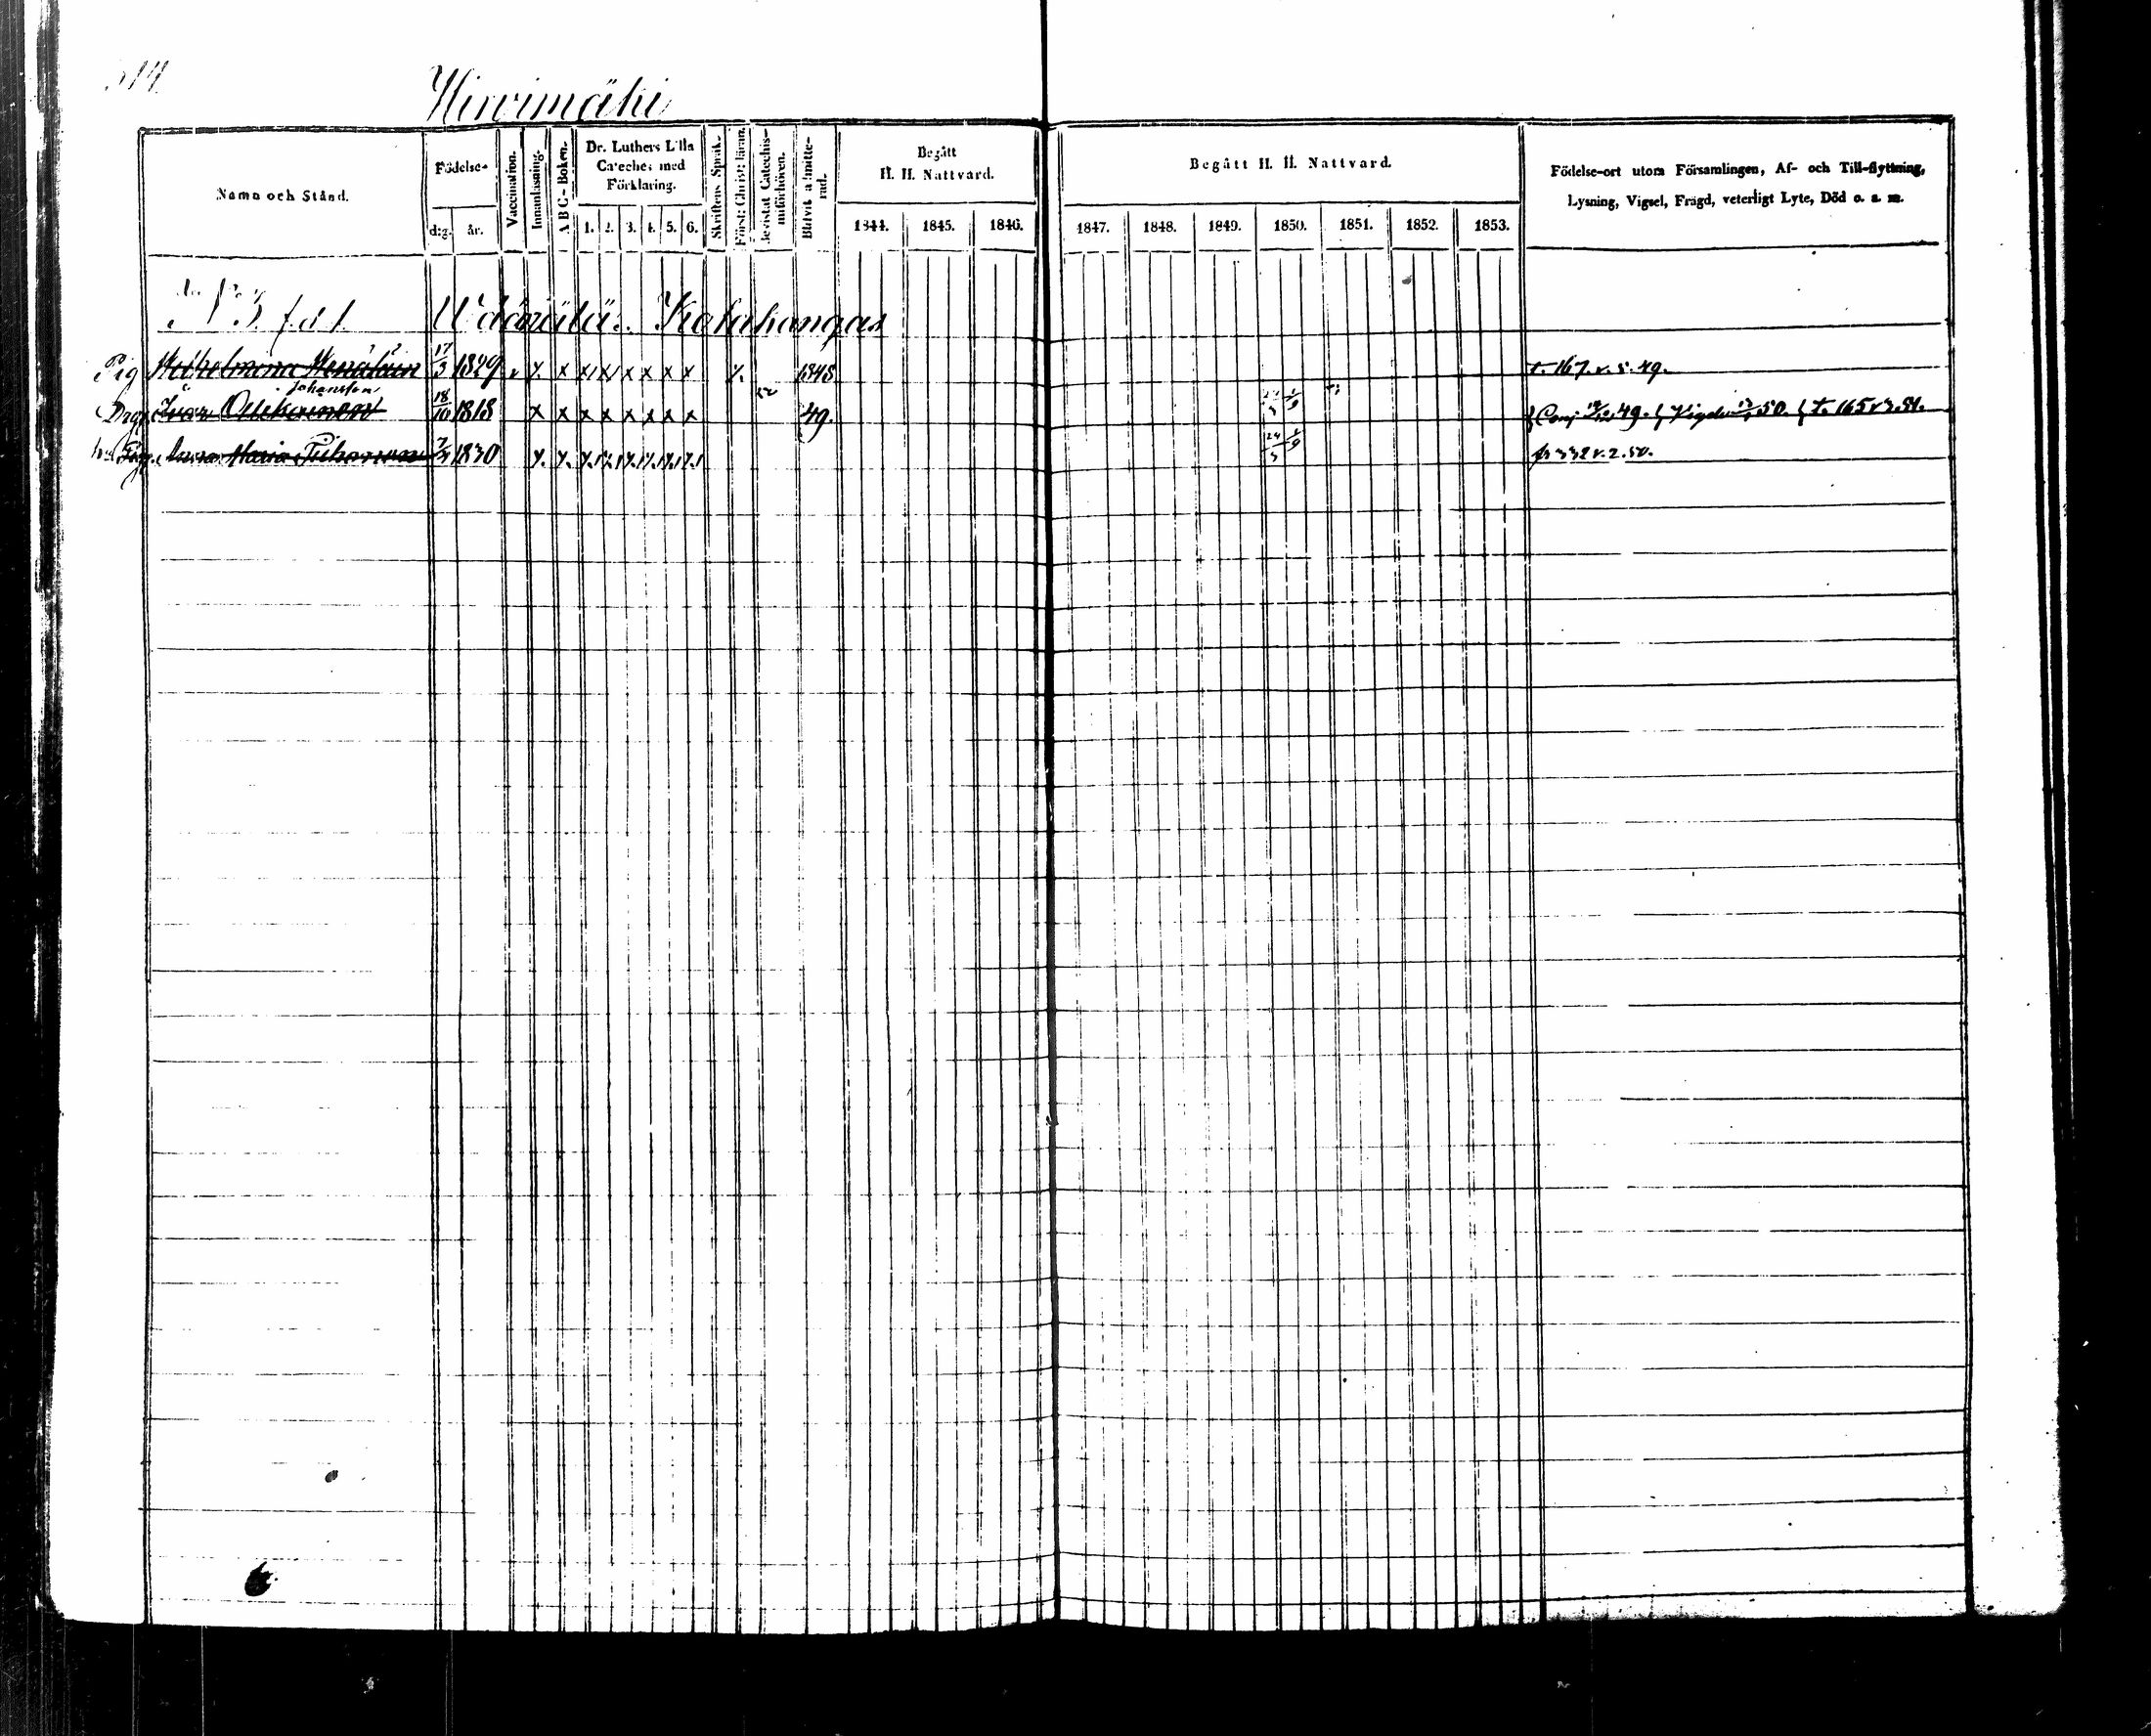 314.
Hirvimäki
Namn och Stånd.
Födelse-
dag.
år.
Vaccination.
Innanläsning.
A B C-Boken.
Dr. Luthers Lilla Cateches med Förklaring.
1. 2. 3. 4. 5. 6.
Skriftens Språk.
Först: Christ: läran.
Bevistat Catechis-muförhören.
Blifvit admitte-rad.
Begått H. H. Nattvard.
1844. 1845. 1846.
Begått H. H. Nattvard.
1847. 1848. 1849. 1850. 1851. 1852. 1853.
Födelse-ort utom Församlingen, Af- och Till-flyttning, Lysning, Vigsel, Frägd, veterligt Lyte, Död o. s. m.
N 3 Kotakangas
Pig Wilhelmina Wenäläin 17/3 1829 x x x x x x x x x 1848 t. 167. v. 5. 49.
Johansson
Drg Ollikainen 18/10 1818 x x x x x x x x 49. 50. t. 165 v 3. 51.
Anna Maria Tiihonen 1830 x. x. x. x. x. x. x. x. fr 332 v. 2. 50.